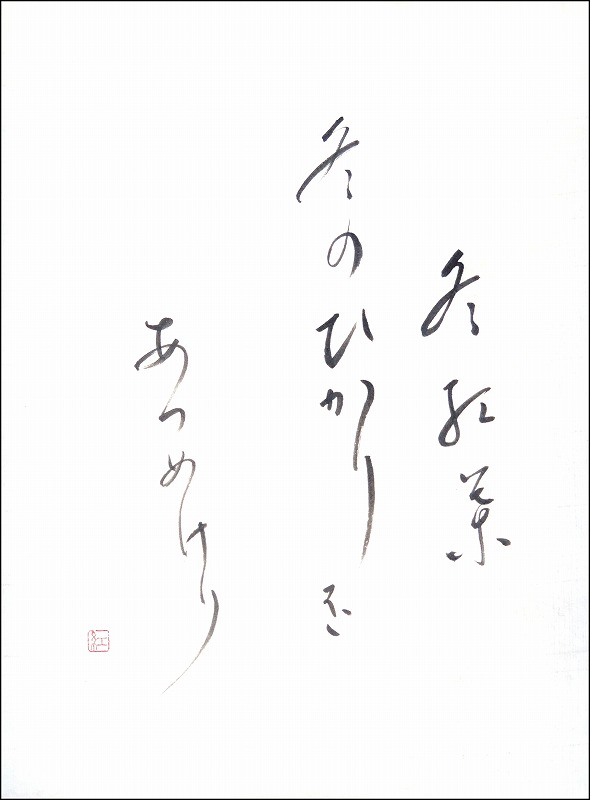 冬紅葉
冬のひかりを
あつめけり
紅